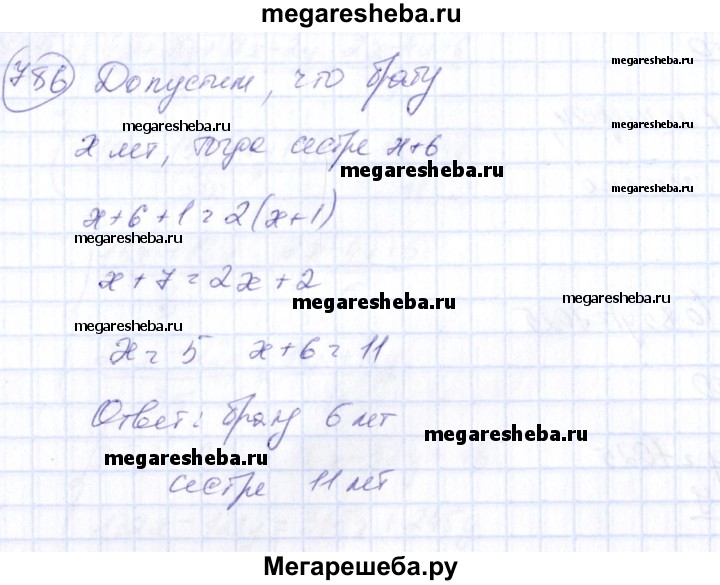 megaresheba.ru
786 Допустим, что брату
megaresheba.ru
megaresheba.ru
х лет, тогда сестре х+6
megaresheba.ru
megaresheba.ru
х+6+1=2(х+1)
megaresheba.ru
х+7=2х+2
megaresheba.ru
megaresheba.ru
megaresheba.ru
х=5 х+6=11
Ответ: брату 6 лет
megaresheba.ru
megaresheba.ru
сестре 11 лет
Мегарешеба.ру